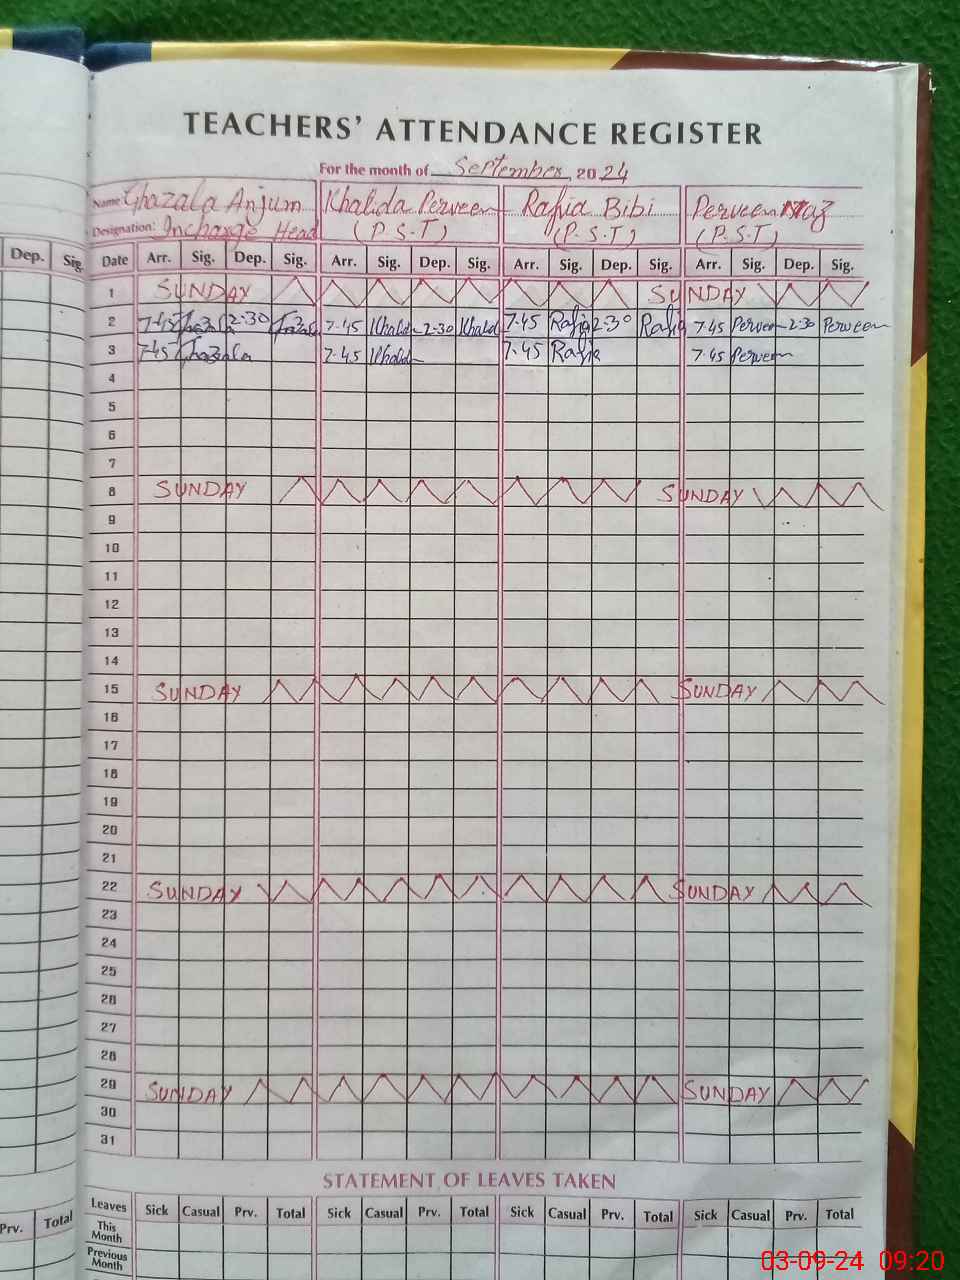 TEACHERS' ATTENDANCE REGISTER
For the month of September, 2024
Name: Ghazala Anjum Khalida Perveen Rafia Bibi Perveen Naz
Designation: Incharge Head (P.S.T) (P.S.T) (P.S.T)
Dep. Sig.
Date Arr. Sig. Dep. Sig. Arr. Sig. Dep. Sig. Arr. Sig. Dep. Sig. Arr. Sig. Dep. Sig.
1 SUNDAY SUNDAY
2 7-45 Ghazala 2-30 Ghazala 7-45 Khalid 2-30 Khalid 7-45 Rafia 2-30 Rafia 7-45 Perveen 2-30 Perveen
3 7-45 Ghazala 7-45 Khalid 7-45 Rafia 7-45 Perveen
4
5
6
7
8 SUNDAY SUNDAY
9
10
11
12
13
14
15 SUNDAY SUNDAY
16
17
18
19
20
21
22 SUNDAY SUNDAY
23
24
25
26
27
28
29 SUNDAY SUNDAY
30
31
STATEMENT OF LEAVES TAKEN
Prv. Total
Leaves Sick Casual Prv. Total Sick Casual Prv. Total Sick Casual Prv. Total Sick Casual Prv. Total
This Month
Previous Month
03-09-24 09:20